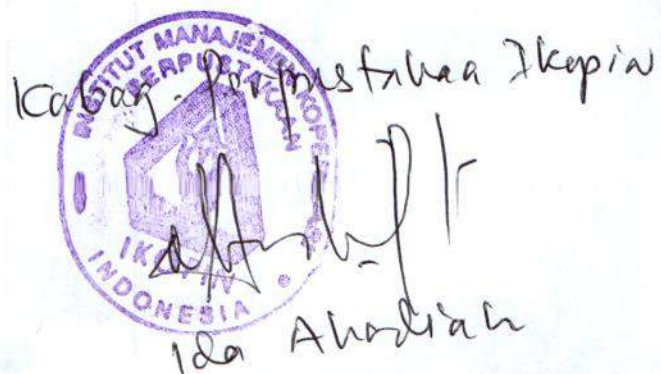 Kabag. Perpustakaan Ikopin
INSTITUT MANAJEMEN KOPERASI
PERPUSTAKAAN
IKOPIN
INDONESIA
Ida Ahadiah